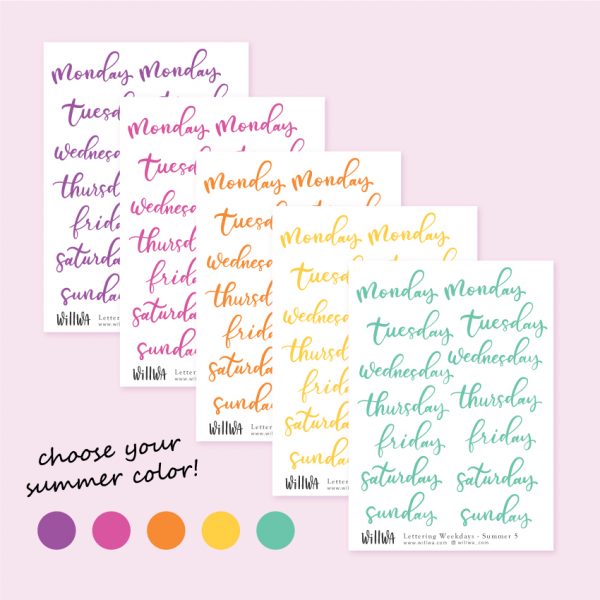 Monday Monday
Tuesd
wednesd
thursda
friday
saturda
sunday
WillWa
www.willwa
Monday Monday
Tuesd
wednesd
thursday
frida
saturda
sunday
WillWa
www.willwa
Monday Monday
Tuesday
wednesd
thursda
friday
saturda
sunday
WillWa
www.willwa
Monday Monday
Tuesd
wednesd
thursda
frida
saturda
sunday
WillWa
www.willwa
Monday Monday
Tuesday Tuesday
wednesday wednesday
thursday thursday
friday friday
saturday saturday
sunday sunday
WillWa
Lettering Weekdays - Summer 5
www.willwa.com willwa_com
choose your
summer color!